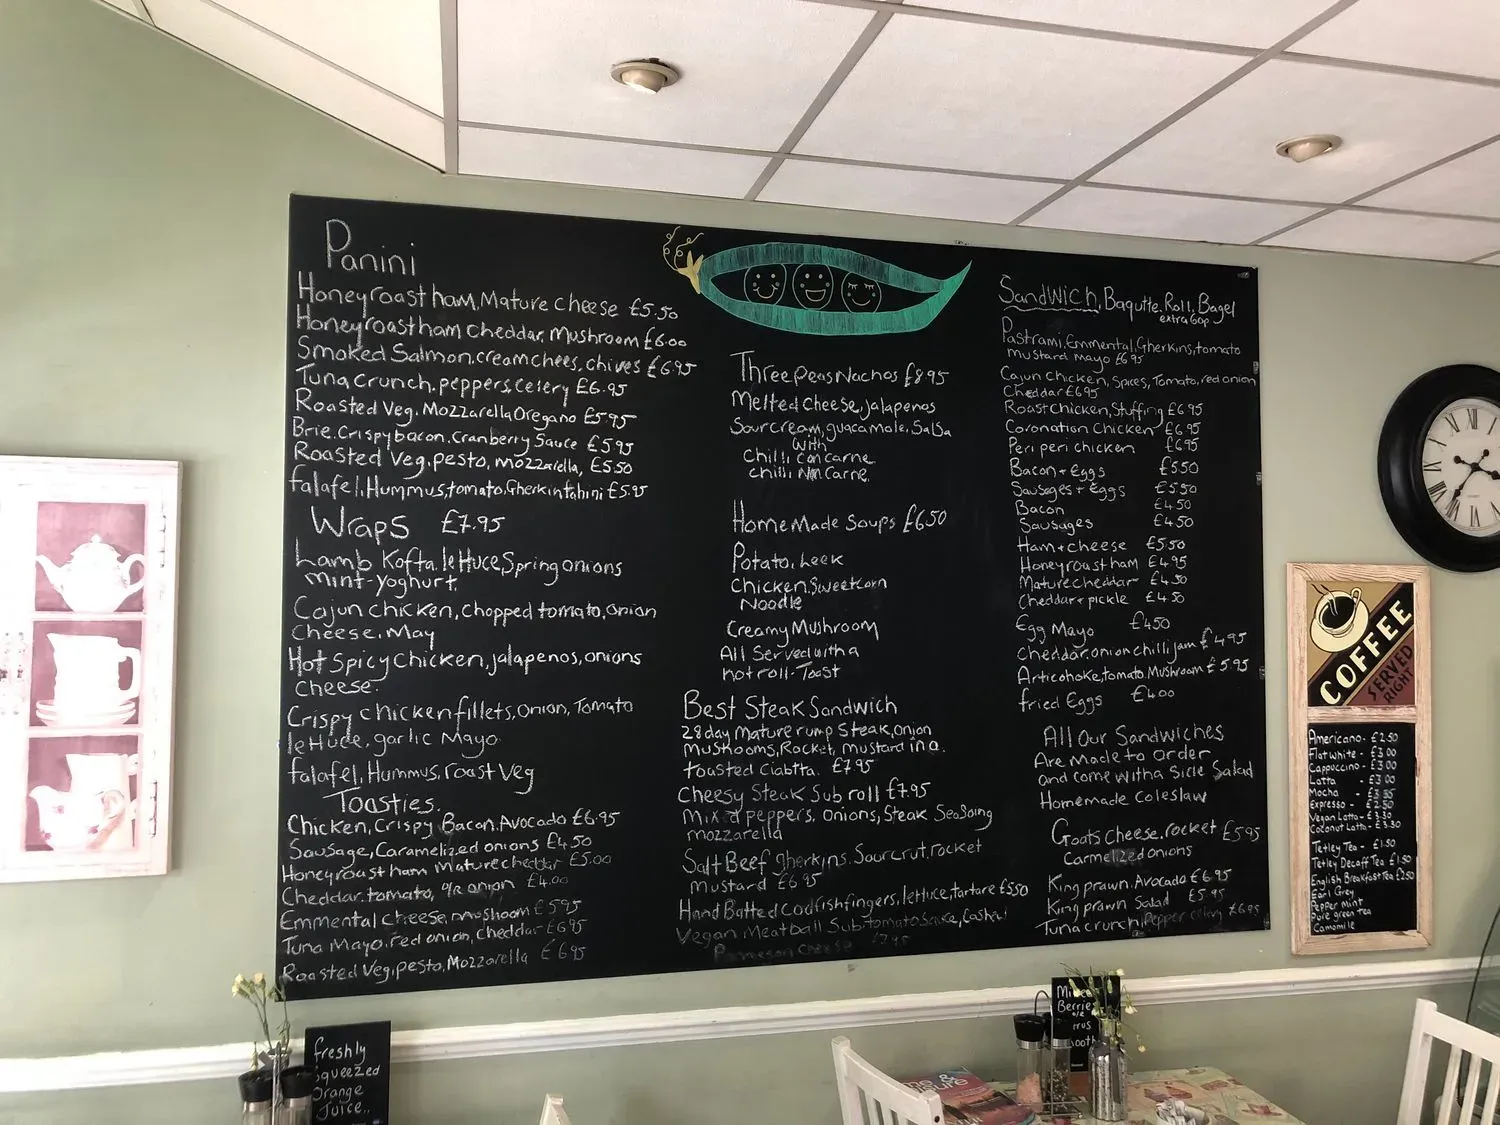 Panini
Honeyroast ham, Mature cheese £5.50
Honeyroastham cheddar, Mushroom £6.00
Smoked Salmon, creamchees, chives £6.95
Tuna crunch, peppers, celery £6.95
Roasted Veg, Mozzarella Oregano £5.95
Brie, Crispy bacon, Cranberry Sauce £5.95
Roasted Veg, pesto, mozzarella, £5.50
falafel, Hummus, tomato, Gherkin tahini £5.95
Wraps £7.95
Lamb Kofta, lettuce, Spring onions
mint-yoghurt
Cajun chicken, chopped tomato, onion
Cheese, May
Hot Spicy Chicken, jalapenos, onions
cheese.
Crispy chicken fillets, onion, Tomato
lettuce, garlic Mayo
falafel, Hummus, roast Veg
Toasties.
Chicken, Crispy Bacon, Avocado £6.95
Sausage, Caramelized onions £4.50
Honeyroast ham Mature cheddar £5.00
Cheddar tomato, onion £4.00
Emmental cheese, mushoom £5.95
Tuna Mayo, red onion, cheddar £6.95
Roasted Veg, pesto, Mozzarella £6.95
Three peas Nachos £8.95
Melted cheese, jalapenos
Sour cream, guacamole, Salsa
with
chilli Con carne
chilli Non Carne.
Home Made Soups £6.50
Potato, Leek
Chicken, Sweetcorn
Noodle
Creamy Mushroom
All Served with a
hot roll-Toast
Best Steak Sandwich
28 day Mature rump Steak, onion
Mushooms, Rocket, mustard in a.
toasted Ciabtta. £7.95
Cheesy Steak Sub roll £7.95
Mixed peppers, onions, Steak Seasoing
mozzarella
Salt Beef gherkins, Sourcrut, rocket
mustard £6.95
Hand Batted Cod fishfingers, lettuce, tartare £5.50
Vegan Meatball Sub tomato Sauce, Cashew
Parmesan cheese £7.95
Sandwich, Baqutte, Roll, Bagel
extra 60p
Pastrami, Emmental, Gherkins, tomato
mustard mayo £6.95
Cajun chicken, Spices, Tomato, red onion
Cheddar £6.95
Roast chicken, Stuffing £6.95
Coronation Chicken £6.95
Peri peri chicken £6.95
Bacon + Eggs £5.50
Sausages + Eggs £5.50
Bacon £4.50
Sausages £4.50
Ham + cheese £5.50
Honeyroast ham £4.95
Mature cheddar £4.50
Cheddar + pickle £4.50
Egg Mayo £4.50
Cheddar, onion chilli jam £4.95
Artichoke, tomato, Mushroom £5.95
fried Eggs £4.00
All Our Sandwiches
Are Made to order
and come with a Side Salad
Homemade Coleslaw
Goats cheese, rocket £5.95
Carmelized onions
King prawn, Avocado £6.95
King prawn Salad £5.95
Tuna crunch, pepper celery £6.95
COFFEE
SERVED
RIGHT
Americano - £2.50
Flat white - £3.00
Cappuccino - £3.00
Latta - £3.00
Mocha - £3.35
Expresso - £2.50
Vegan Latta - £3.30
Coconut Latta - £3.30
Tetley Tea - £1.50
Tetley Decaff Tea £1.50
English Breakfast Tea £2.50
Earl Grey
Pepper mint
Pure green tea
Camomile
freshly
Squeezed
orange
juice..
Berries